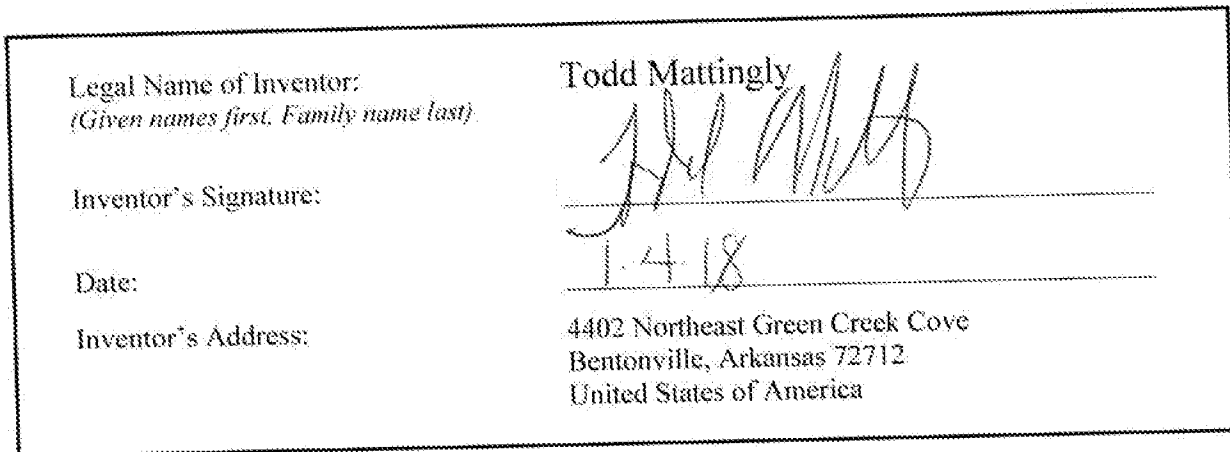 Legal Name of Inventor: Todd Mattingly
(Given names first, Family name last)
Inventor's Signature:
Date: 1-4-18
Inventor's Address: 4402 Northeast Green Creek Cove
Bentonville, Arkansas 72712
United States of America